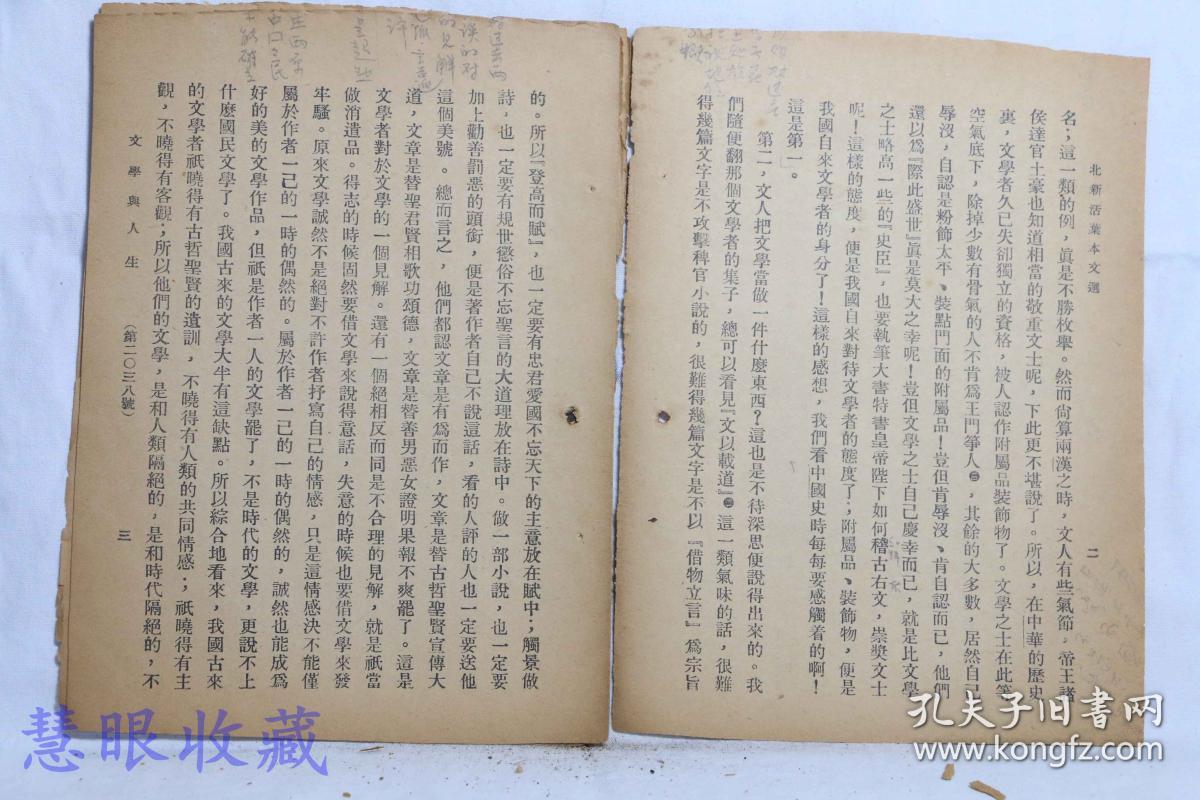 北新活葉本文選
二
名；這一類的例，眞是不勝枚舉。然而尙算兩漢之時，文人有些氣節，帝王諸
侯達官土豪也知道相當的敬重文士呢，下此更不堪說了。所以，在中華的歷史
裏，文學者久已失卻獨立的資格，被人認作附屬品裝飾物了。文學之士在此等
空氣底下，除掉少數有骨氣的人不肯爲王門爭人㊂，其餘的大多數，居然自己
辱沒，自認是粉飾太平、裝點門面的附屬品！豈但肯辱沒、肯自認而已，他們
還以爲『際此盛世』眞是莫大之幸呢！豈但文學之士自己慶幸而已，就是比文學
之士略高一些的『史臣』，也要執筆大書特書皇帝陛下如何稽古右文，崇奬文士
呢！這樣的態度，便是我國自來對待文學者的態度了；附屬品、裝飾物，便是
我國自來文學者的身分了！這樣的感想，我們看中國史時每每要感觸着的啊！
這是第一。
第二，文人把文學當做一件什麼東西？這也是不待深思便說得出來的。我
們隨便翻那個文學者的集子，總可以看見『文以載道』㊃這一類氣味的話，很難
得幾篇文字是不攻擊稗官小說的，很難得幾篇文字是不以『借物立言』爲宗旨
的。所以『登高而賦』，也一定要有忠君愛國不忘天下的主意放在賦中；觸景做
詩，也一定要有規世懲俗不忘聖言的大道理放在詩中。做一部小說，也一定要
加上勸善罰惡的頭銜，便是著作者自己不說這話，看的人評的人也一定要送他
這個美號。總而言之，他們都認文章是有爲而作，文章是替古哲聖賢宣傳大
道，文章是替聖君賢相歌功頌德，文章是替善男惡女證明果報不爽罷了。這是
文學者對於文學的一個見解。還有一個絕相反而同是不合理的見解，就是祇當
做消遣品。得志的時候固然要借文學來說得意話，失意的時候也要借文學來發
牢騷。原來文學誠然不是絕對不許作者抒寫自己的情感，只是這情感決不能僅
屬於作者一己的一時的偶然的。屬於作者一己的一時的偶然的，誠然也能成爲
好的美的文學作品，但祇是作者一人的文學罷了，不是時代的文學，更說不上
什麼國民文學了。我國古來的文學大半有這缺點。所以綜合地看來，我國古來
的文學者祇曉得有古哲聖賢的遺訓，不曉得有人類的共同情感；祇曉得有主
觀，不曉得有客觀；所以他們的文學，是和人類隔絕的，是和時代隔絕的，不
文學與人生
（第二〇三八號）
三
慧眼收藏
孔夫子旧書网
www.kongfz.com